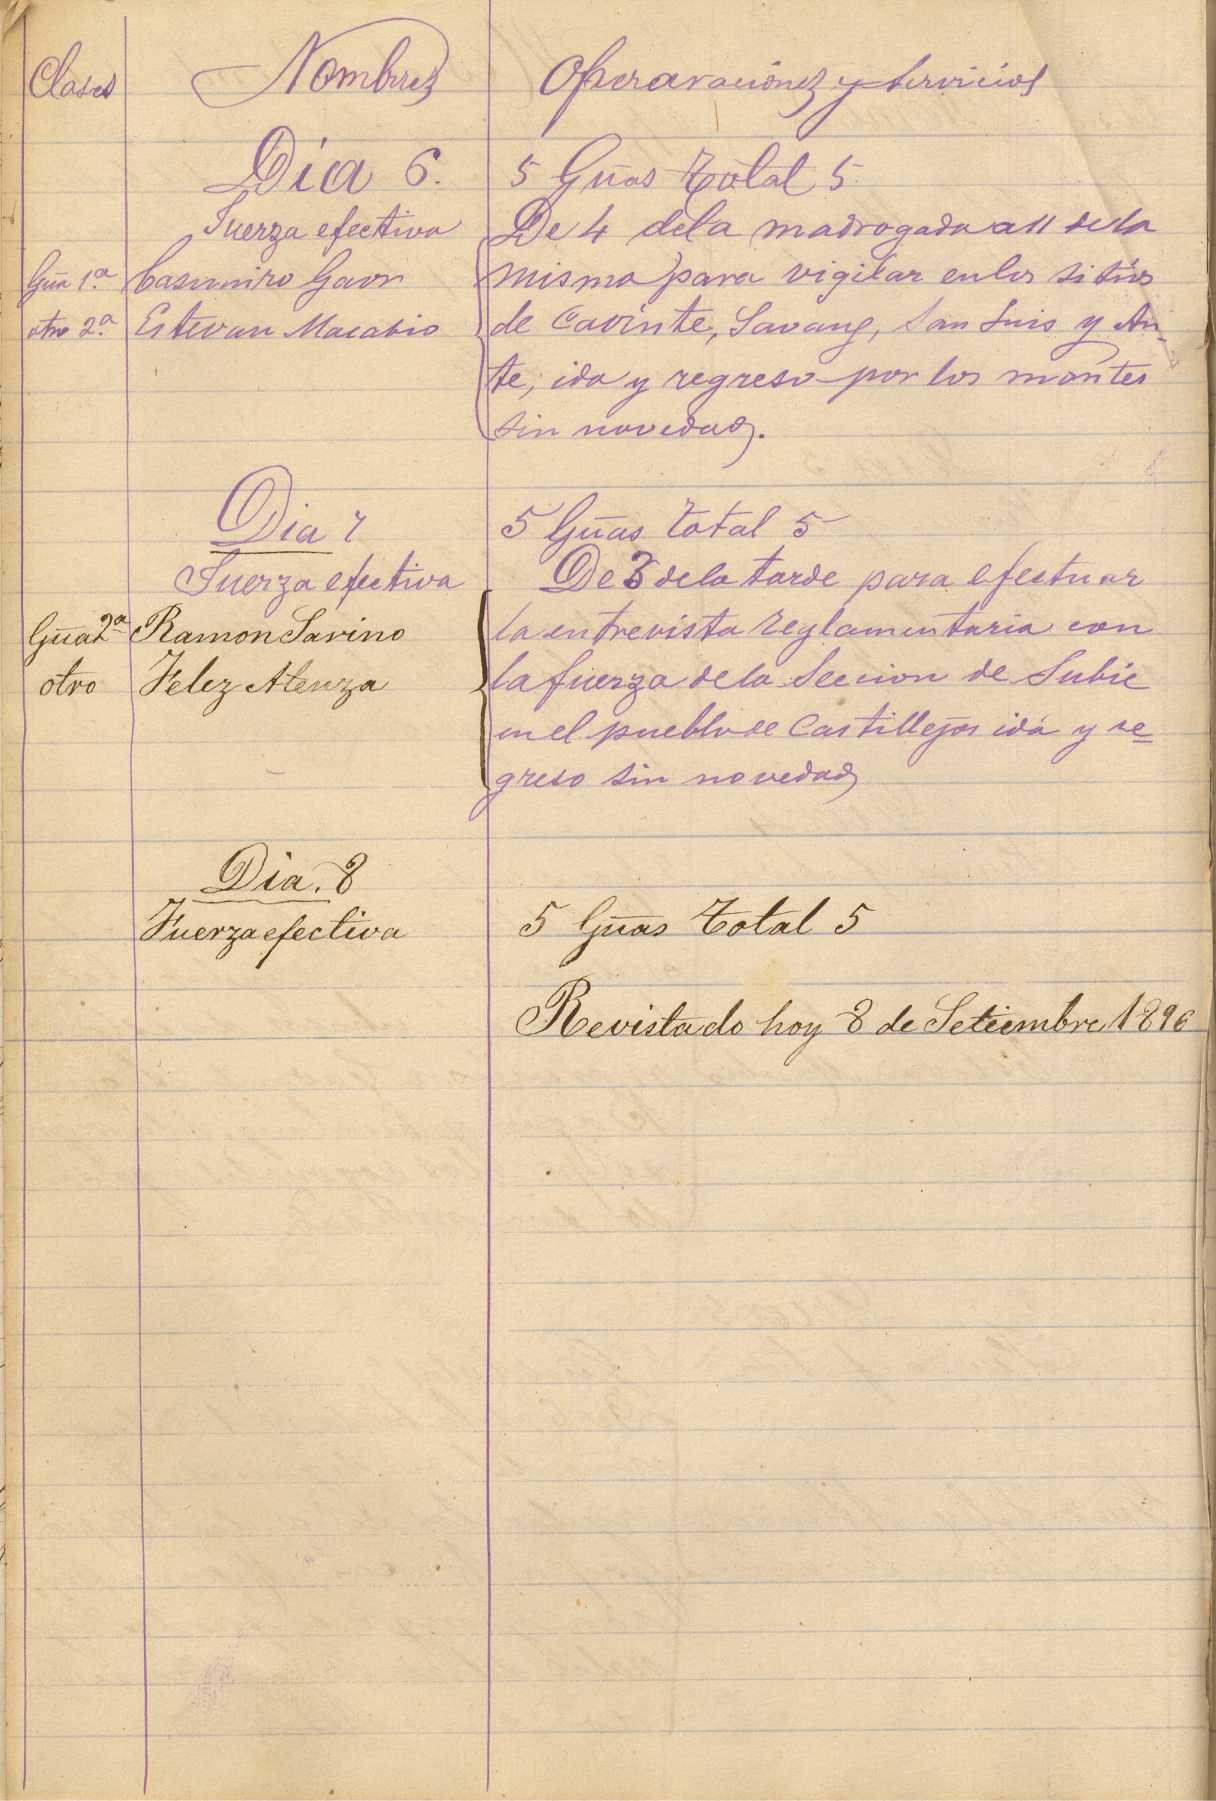 Clases Nombres Operaraciones y Servicios
Dia 6. 5 Gũas Total 5.
Fuerza efectiva De 4 dela madrogada a 11 de la
Gũa 1.ª Casimiro Gaor misma para vigilar en los sitios
otro 2.ª Estevan Macabio de Cavinte, Savang, San Luis y An-
te, ida y regreso por los montes
sin novedad.
Dia 7 5 Gũas Total 5
Fuerza efectiva De 3 dela tarde para efectuar
Gũa 2ª Ramon Savino la entrevista reglamentaria con
otro Felez Atenza la fuerza dela Seccion de Subic
en el pueblo de Castillejos ida y re-
greso sin novedad
Dia. 8
Fuerza efectiva 5 Gũas Total 5
Revistado hoy 8 de Setiembre 1896